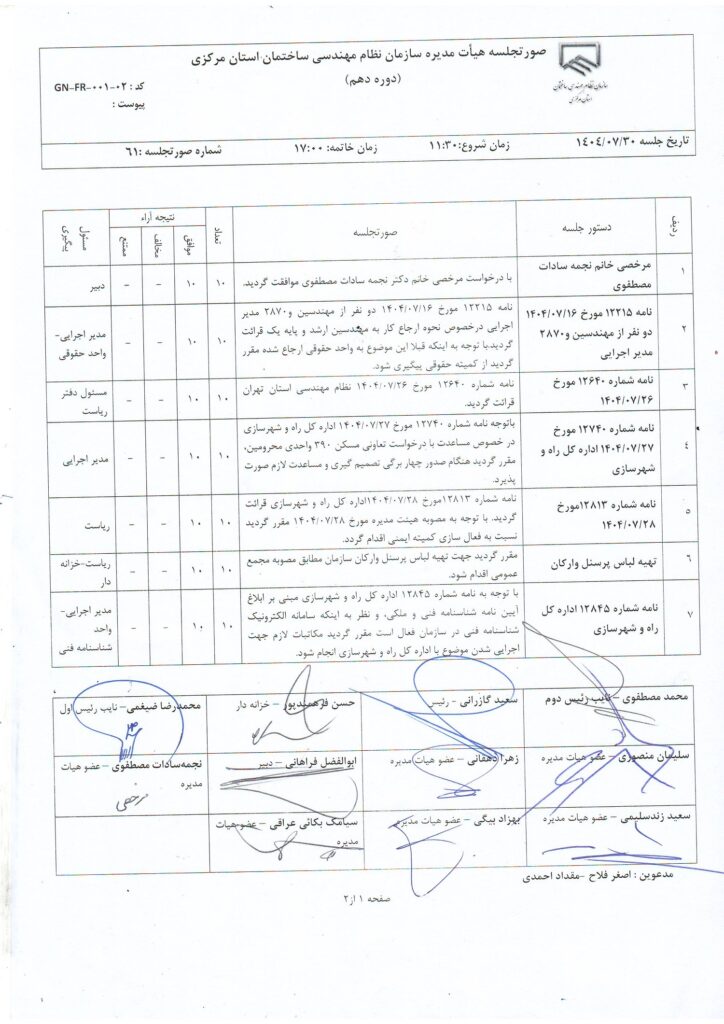 صورتجلسه هیأت مدیره سازمان نظام مهندسی ساختمان استان مرکزی
(دوره دهم)
سازمان نظام مهندسی ساختمان
استان مرکزی
کد : GN-FR-۰۰۱-۰۲
پیوست :
تاریخ جلسه ۱۴۰۴/۰۷/۳۰ زمان شروع: ۱۱:۳۰ زمان خاتمه: ۱۷:۰۰ شماره صورتجلسه :۶۱
ردیف دستور جلسه صورتجلسه تعداد نتیجه آراء مسئول پیگیری
موافق مخالف ممتنع
۱ مرخصی خانم نجمه سادات مصطفوی با درخواست مرخصی خانم دکتر نجمه سادات مصطفوی موافقت گردید. ۱۰ ۱۰ – – دبیر
۲ نامه ۱۲۲۱۵ مورخ ۱۴۰۴/۰۷/۱۶
دو نفر از مهندسین و۲۸۷۰
مدیر اجرایی
نامه ۱۲۲۱۵ مورخ ۱۴۰۴/۰۷/۱۶ دو نفر از مهندسین و۲۸۷۰ مدیر
اجرایی درخصوص نحوه ارجاع کار به مهندسین ارشد و پایه یک قرائت
گردید.با توجه به اینکه قبلا این موضوع به واحد حقوقی ارجاع شده مقرر
گردید از کمیته حقوقی پیگیری شود.
۱۰ ۱۰ – – مدیر اجرایی-
واحد حقوقی
۳ نامه شماره ۱۲۶۴۰ مورخ
۱۴۰۴/۰۷/۲۶
نامه شماره ۱۲۶۴۰ مورخ ۱۴۰۴/۰۷/۲۶ نظام مهندسی استان تهران
قرائت گردید.
۱۰ ۱۰ – – مسئول دفتر
ریاست
۴ نامه شماره ۱۲۷۴۰ مورخ
۱۴۰۴/۰۷/۲۷ اداره کل راه و
شهرسازی
باتوجه نامه شماره ۱۲۷۴۰ مورخ ۱۴۰۴/۰۷/۲۷ اداره کل راه و شهرسازی
در خصوص مساعدت با درخواست تعاونی مسکن ۳۹۰ واحدی محرومین،
مقرر گردید هنگام صدور چهار برگی تصمیم گیری و مساعدت لازم صورت
پذیرد.
۱۰ ۱۰ – – مدیر اجرایی
۵ نامه شماره ۱۲۸۱۳مورخ
۱۴۰۴/۰۷/۲۸
نامه شماره ۱۲۸۱۳مورخ ۱۴۰۴/۰۷/۲۸اداره کل راه و شهرسازی قرائت
گردید. با توجه به مصوبه هیئت مدیره مورخ ۱۴۰۴/۰۷/۲۸ مقرر گردید
نسبت به فعال سازی کمیته ایمنی اقدام گردد.
۱۰ ۱۰ – – ریاست
۶ تهیه لباس پرسنل وارکان
مقرر گردید جهت تهیه لباس پرسنل وارکان سازمان مطابق مصوبه مجمع
عمومی اقدام شود.
۱۰ ۱۰ – – ریاست-خزانه
دار
۷ نامه شماره ۱۲۸۴۵ اداره کل
راه و شهرسازی
با توجه به نامه شماره ۱۲۸۴۵ اداره کل راه و شهرسازی مبنی بر ابلاغ
آیین نامه شناسنامه فنی و ملکی، و نظر به اینکه سامانه الکترونیک
شناسنامه فنی در سازمان فعال است مقرر گردید مکاتبات لازم جهت
اجرایی شدن موضوع با اداره کل راه و شهرسازی انجام شود.
۱۰ ۱۰ – – مدیر اجرایی-
واحد
شناسنامه فنی
محمد مصطفوی – نایب رئیس دوم سعید گازرانی - رئیس حسن فرهمیدپور – خزانه دار محمدرضا ضیغمی – نایب رئیس اول
سلیمان منصوری – عضو هیات مدیره زهرا دهقانی – عضو هیات مدیره ابوالفضل فراهانی – دبیر نجمه‌سادات مصطفوی – عضو هیات
مدیره
مرخصی
سعید زندسلیمی – عضو هیات مدیره بهزاد بیگی – عضو هیات مدیره سیامک یکائی عراقی – عضو هیات
مدیره
مدعوین : اصغر فلاح -مقداد احمدی
صفحه ۱ از۲